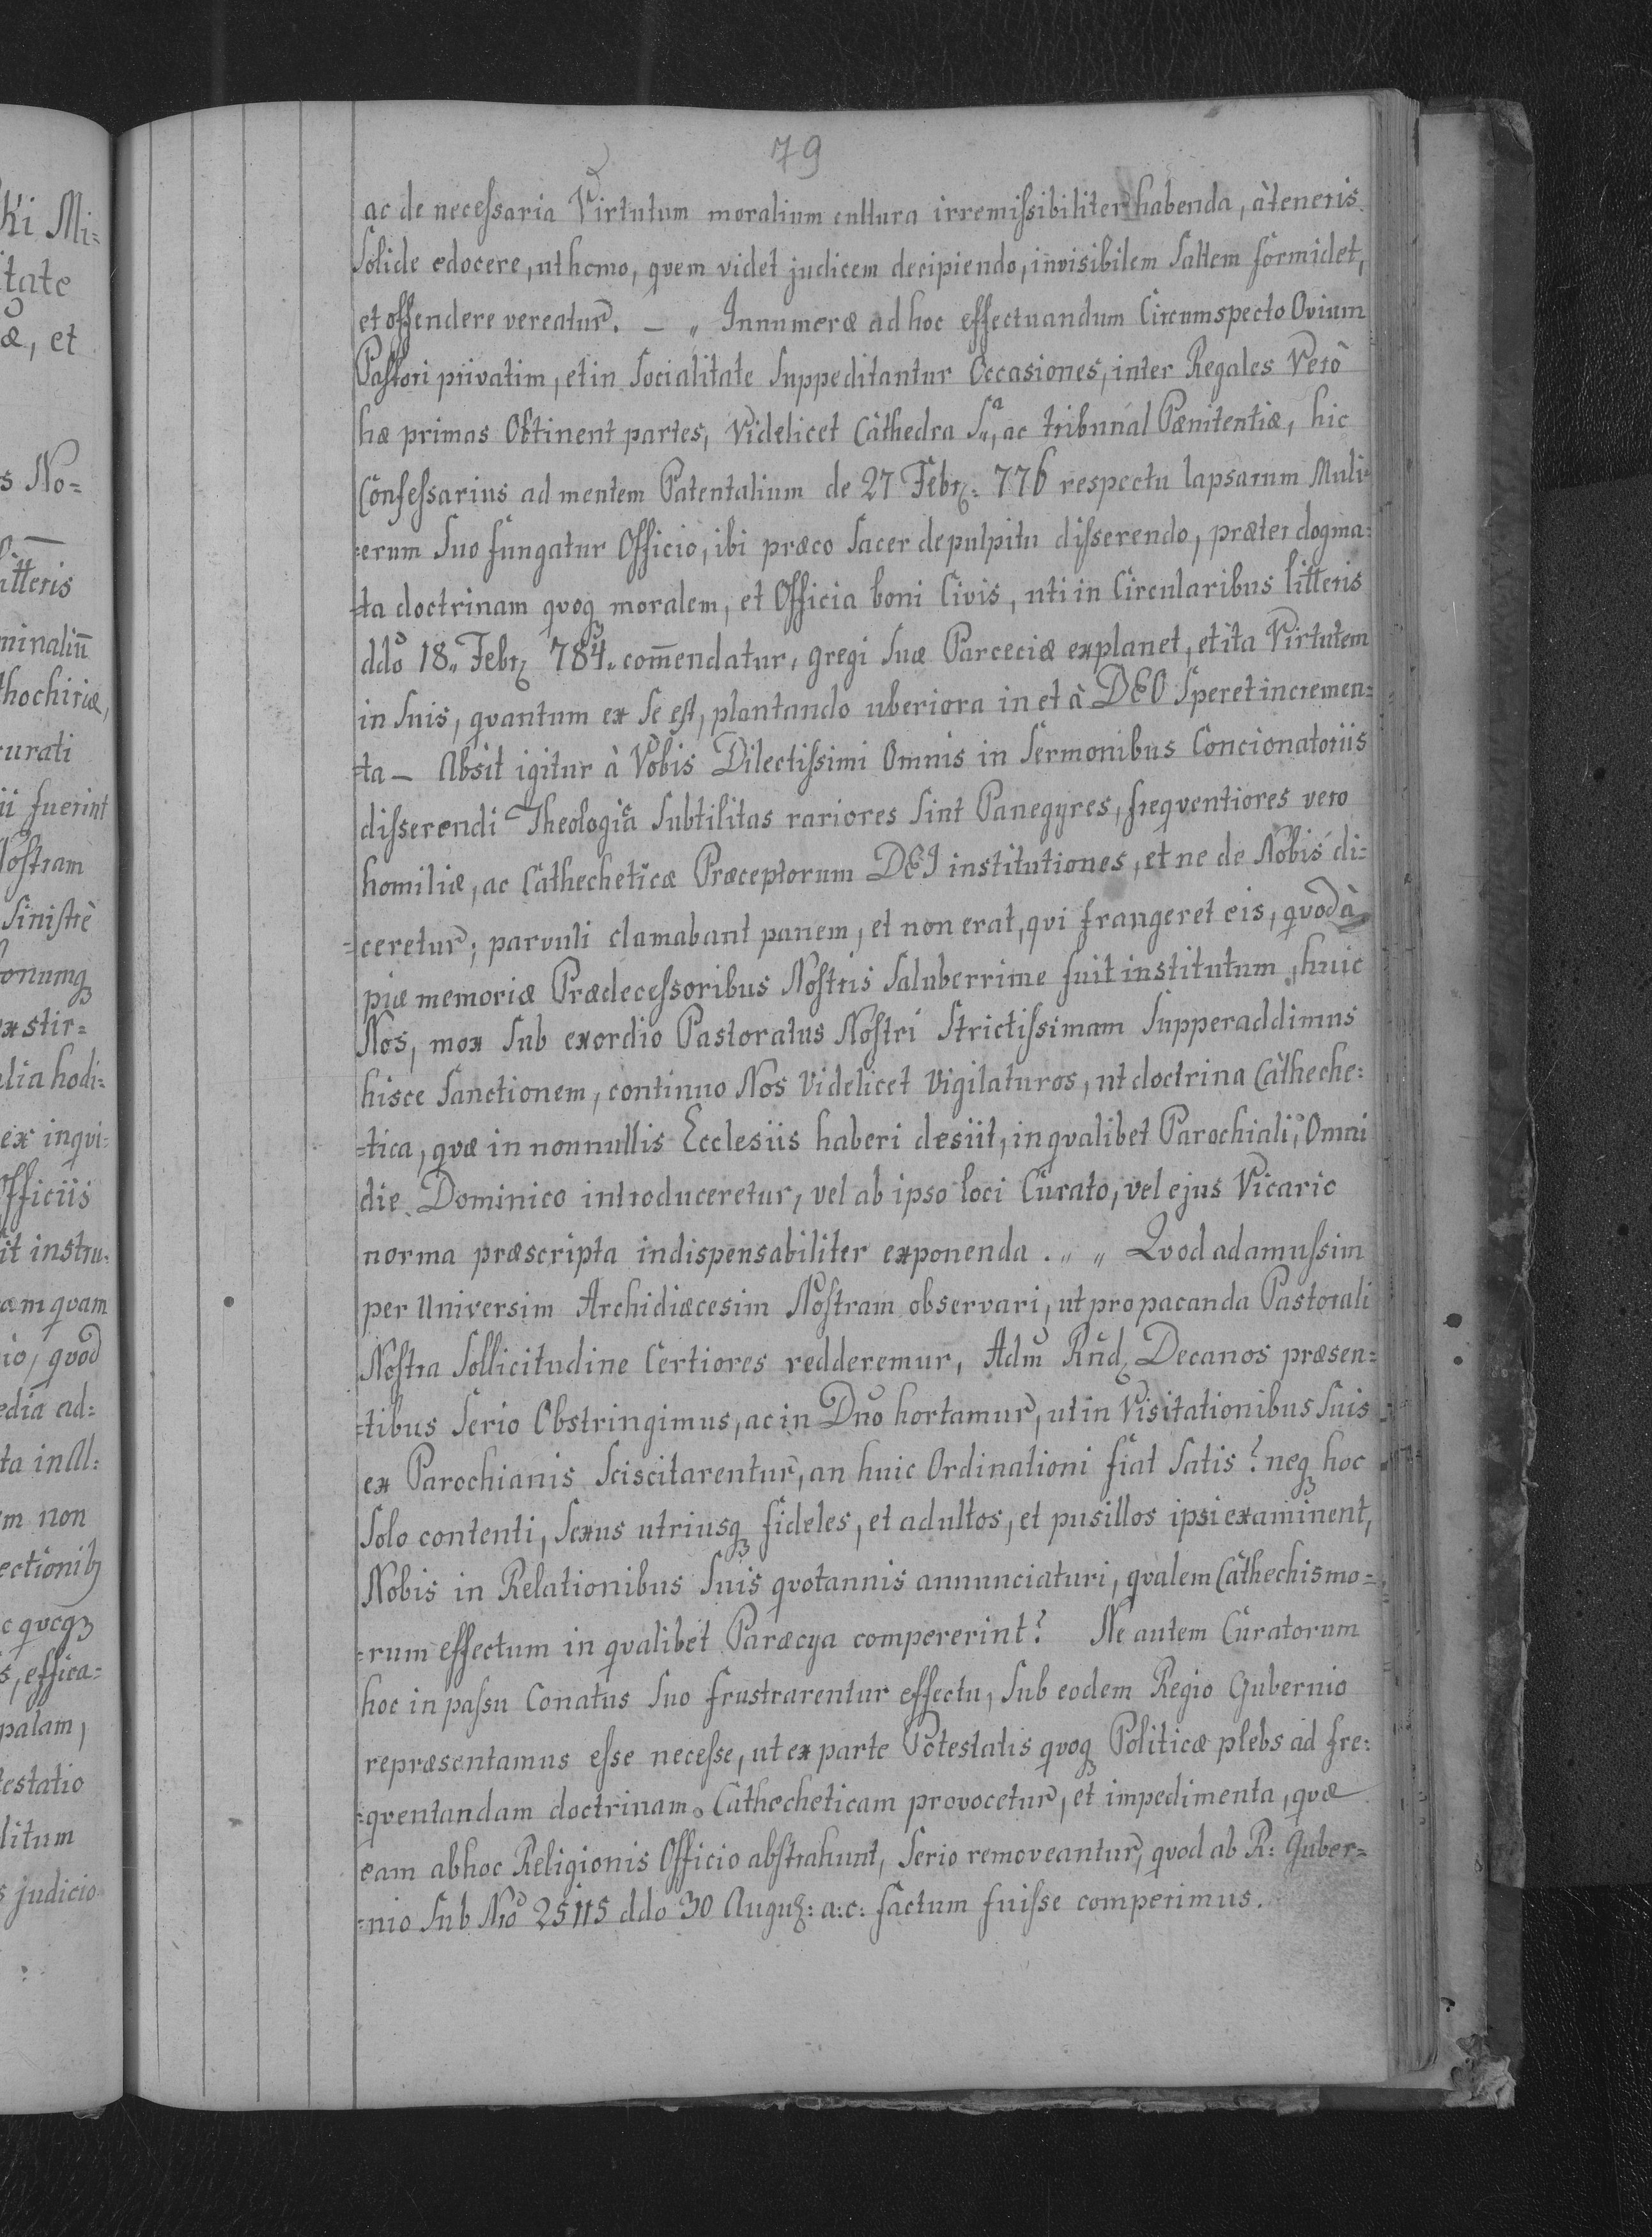 79
ac de necessaria Virtutum moralium cultura irremissibiliter habenda, à teneris
solide edocere, ut homo, qvem videt judicem decipiendo, invisibilem saltem formidet,
et offendere vereatur. — „ Innumeræ ad hoc effectuandum Circumspecto Ovium
Pastori privatim, et in Socialitate Suppeditantur Occasiones, inter Regales Verò
hæ primas Obtinent partes, Videlicet Cathedra S„ª, ac tribunal Pænitentiæ, hic
Confessarius ad mentem Patentalium de 27 Febr: 776 respectu lapsarum Muli=
=erum Suo fungatur Officio, ibi præco Sacer de pulpitu disserendo, præter dogma=
=ta doctrinam qvoq moralem, et Officia boni Civis, uti in Circularibus litteris
ddo 18„ Febr 784„ com̄endatur, gregi Suæ Parœciæ explanet, et ita Virtutem
in Suis, qvantum ex Se est, plantando uberiora in et à DEO Speret incremen=
=ta — Absit igitur à Vobis Dilectissimi Omnis in Sermonibus Concionatoriis
disserendi Theologica Subtilitas rariores Sint Panegyres, freqventiores vero
homiliæ, ac Cathecheticæ Præceptorum DEI institutiones, et ne de Nobis di=
=ceretur; parvuli clamabant panem, et non erat, qvi frangeret eis, qvod à
piæ memoriæ Prædecessoribus Nostris Saluberrime fuit institutum, huic
Nos, mox Sub exordio Pastoratus Nostri Strictissimam Supperaddimus
hisce Sanctionem, continuo Nos Videlicet Vigilaturos, ut doctrina Catheche=
=tica, qvæ in nonnullis Ecclesiis haberi desiit, in qvalibet Parochiali, Omni
die Dominico introduceretur, vel ab ipso loci Curato, vel ejus Vicario
norma præscripta indispensabiliter exponenda. „ „ Qvod adamussim
per Universim Archidiæcesim Nostram observari, ut pro pacanda Pastorali
Nostra Sollicitudine Certiores redderemur, Adm̄ Rnd Decanos præsen=
=tibus Serio Obstringimus, ac in Dn̄o hortamur, ut in Visitationibus Suis
ex Parochianis Sciscitarentur, an huic Ordinationi fiat Satis? neq hoc
Solo contenti, Sexus utriusq fideles, et adultos, et pusillos ipsi examinent,
Nobis in Relationibus Suis qvotannis annunciaturi, qvalem Cathechismo=
=rum effectum in qvalibet Paræcya compererint? Ne autem Curatorum
hoc in passu Conatus Suo frustrarentur effectu, Sub eodem Regio Gubernio
repræsentamus esse necesse, ut ex parte Potestatis qvoq Politicæ plebs ad fre=
=qventandam doctrinam Cathecheticam provocetur, et impedimenta, qvæ
eam ab hoc Religionis Officio abstrahunt, Serio removeantur, qvod ab R: Guber=
=nio Sub Nro 25115 ddo 30 Augu: a: c: factum fuisse comperimus.